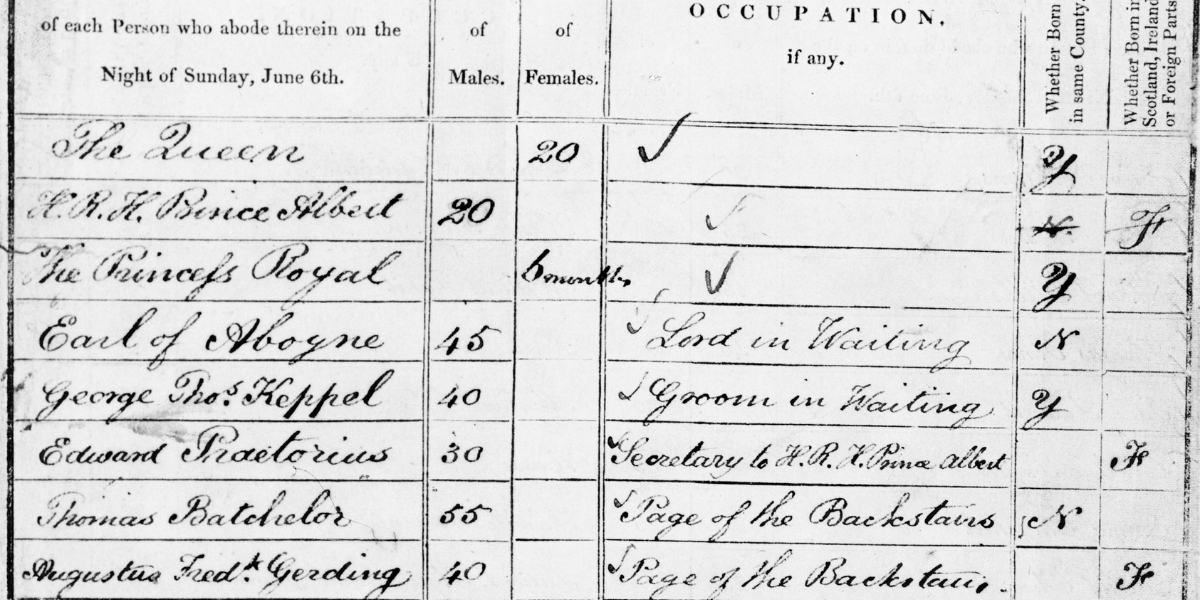 of each Person who abode therein on the
Night of Sunday, June 6th.
of
Males.
of
Females.
OCCUPATION,
if any.
Whether Born
in same County.
Whether Born in
Scotland, Ireland
or Foreign Parts
The Queen 20 Y
H.R.H. Prince Albert 20 N. F
The Princess Royal 6 months Y
Earl of Aboyne 45 Lord in Waiting N
George Thos. Keppel 40 Groom in Waiting Y
Edward Praetorius 30 Secretary to H.R.H. Prince Albert F
Thomas Batchelor 55 Page of the Backstairs N
Augustus Fredk. Gerding 40 Page of the Backstairs F